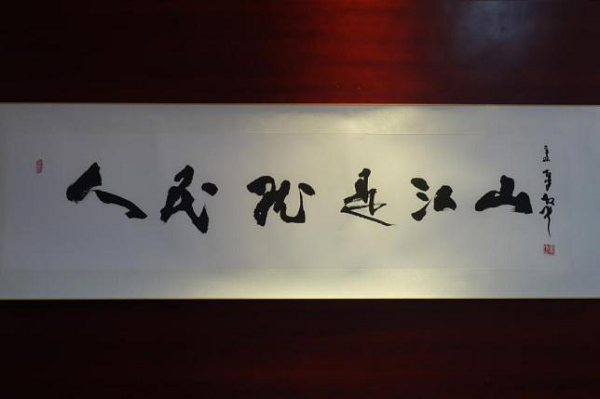 人民就是江山